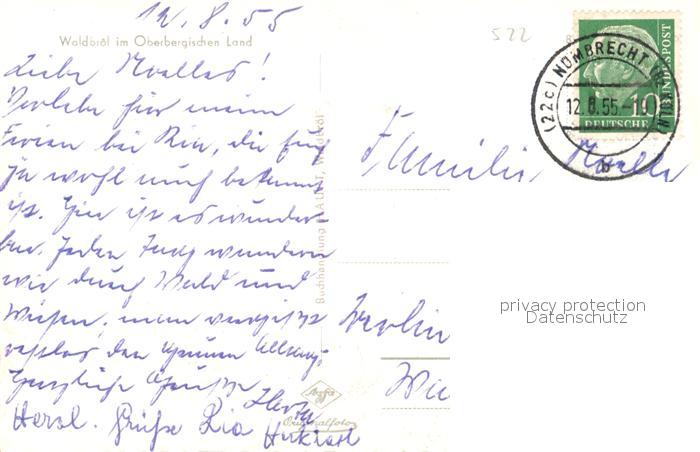 12.8.55
522
Waldbröl im Oberbergischen Land
Liebe Noalles!
Verlebe hier meine
Ferien bei Ria, die Euch
ja wohl noch bekannt
ist. Hier ist es wunder-
bar. Jeden Tag wandern
wir durch Wald und
Wiesen, man vergißt
restlos den grauen Alltag.
Herzliche Grüße
Herzl. Grüße Ria
Buchhandlung Waldbröl
Agfa
Originalfoto
(22c) NÜMBRECHT
12.8.55-19
b
10
DEUTSCHE BUNDESPOST
Familie
Berlin
privacy protection
Datenschutz